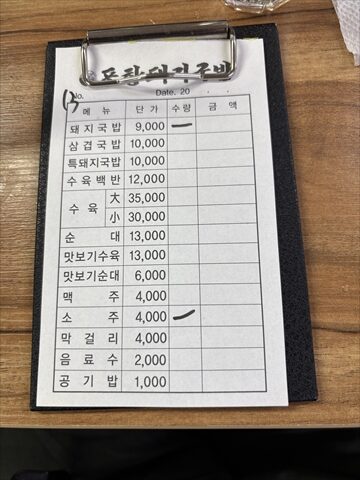 돼지국밥
No. Date. 20
13
메뉴 단가 수량 금액
돼지국밥 9,000 一
삼겹국밥 10,000
특돼지국밥 10,000
수육백반 12,000
수육 大 35,000
小 30,000
순대 13,000
맛보기수육 13,000
맛보기순대 6,000
맥주 4,000
소주 4,000 一
막걸리 4,000
음료수 2,000
공기밥 1,000